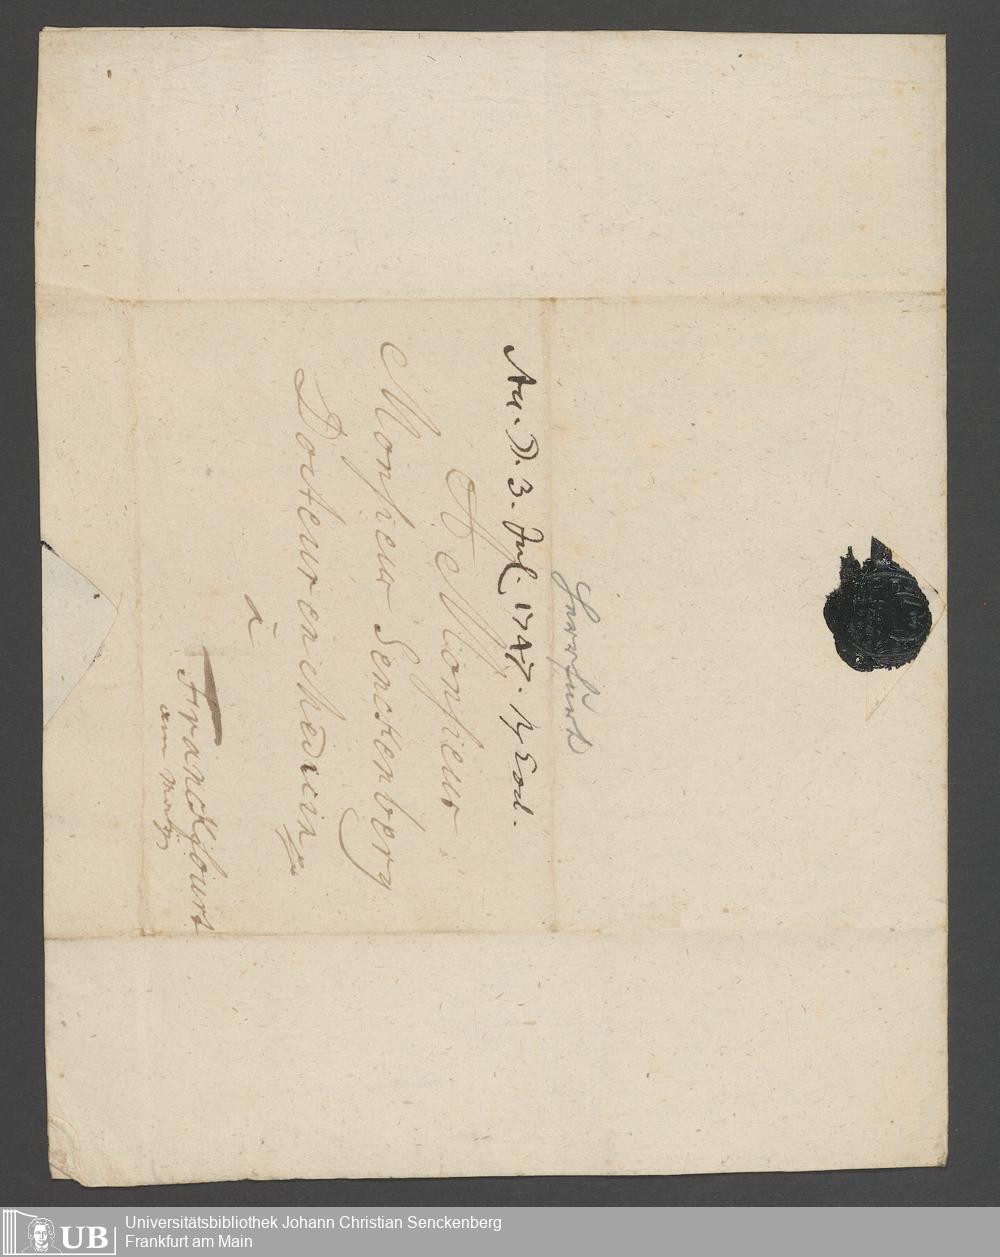 Acc. D. 3. Jul. 1747. Rp. eod.
A Monsieur
Monsieur Senckenberg
Docteur en Medicin
à
Franckfourt
am Mayn
UB
Universitätsbibliothek Johann Christian Senckenberg
Frankfurt am Main